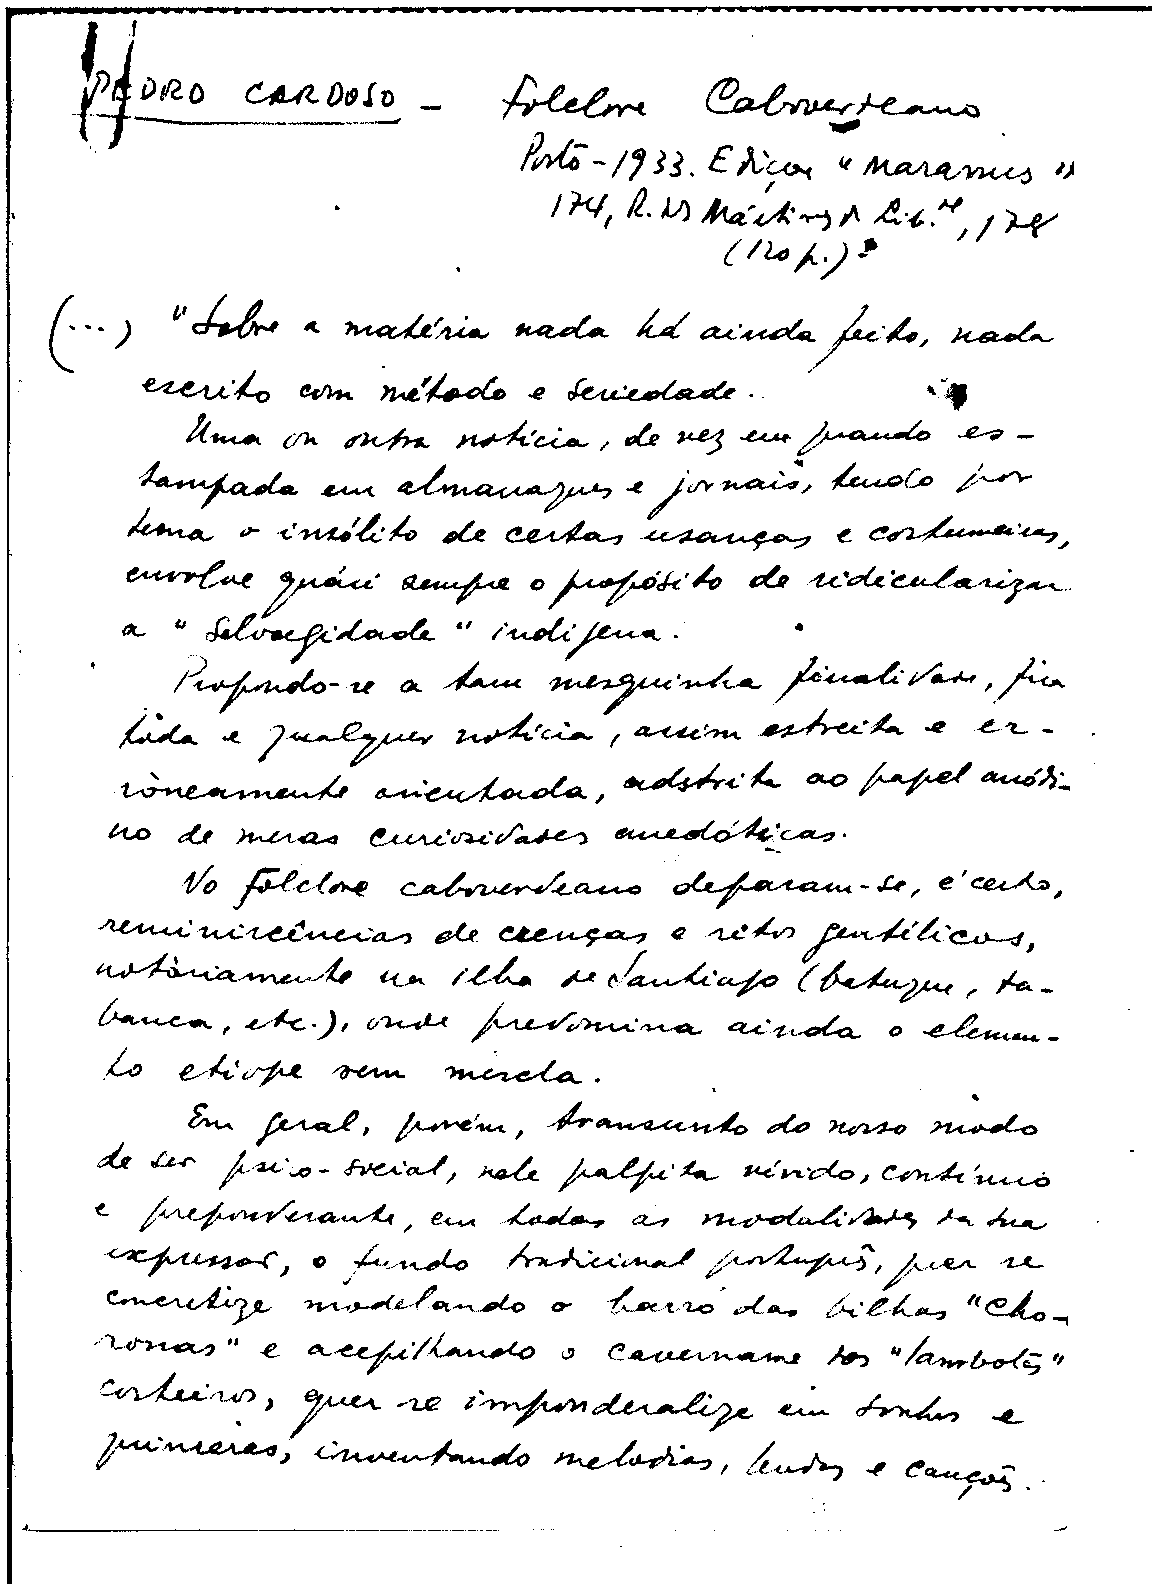 PEDRO CARDOSO - Folclore Caboverdeano
Porto - 1933. Edição "Maranus"
174, R. dos Mártires da Lib.de, 178
(120 p.)
(...) "Sobre a matéria nada há ainda feito, nada
escrito com método e seriedade.
Uma ou outra notícia, de vez em quando es-
tampada em almanaques e jornais, tendo por
tema o insólito de certas usanças e costumeiras,
envolve quási sempre o propósito de ridicularizar
a "selvagidade" indígena.
Propondo-se a tam mesquinha finalidade, fica
tôda e qualquer notícia, assim estreita e er-
ròneamente orientada, adstrita ao papel anódi-
no de meras curiosidades anedóticas.
No folclore caboverdeano deparam-se, é certo,
reminiscências de crenças e ritos gentílicos,
notòriamente na ilha de Santiago (batuque, ta-
banca, etc.), onde predomina ainda o elemen-
to etiope sem mescla.
Em geral, porém, transunto do nosso modo
de ser psico-social, nele palpita vívido, contínuo
e preponderante, em todas as modalidades da sua
expressão, o fundo tradicional português, quer se
concretize modelando o barro das bilhas "cho-
ronas" e acepilhando o cavername dos "lambotes"
costeiros, quer se imponderalize em sonhos e
quimeras, inventando melodias, lendas e canções.